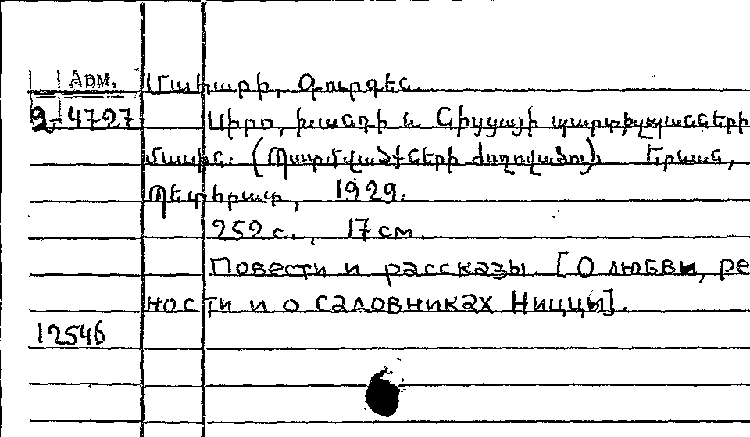 Арм. Մահարի, Գուրգեն.
2-4727 Սիրո, խանդի և Նիցցայի պարտիզպանների
մասին. (Պատմվածքների ժողովածու). Երևան,
Պետհրատ, 1929.
252 с., 17 см.
Повести и рассказы. [О любви, ре
ности и о садовниках Ниццы].
12546